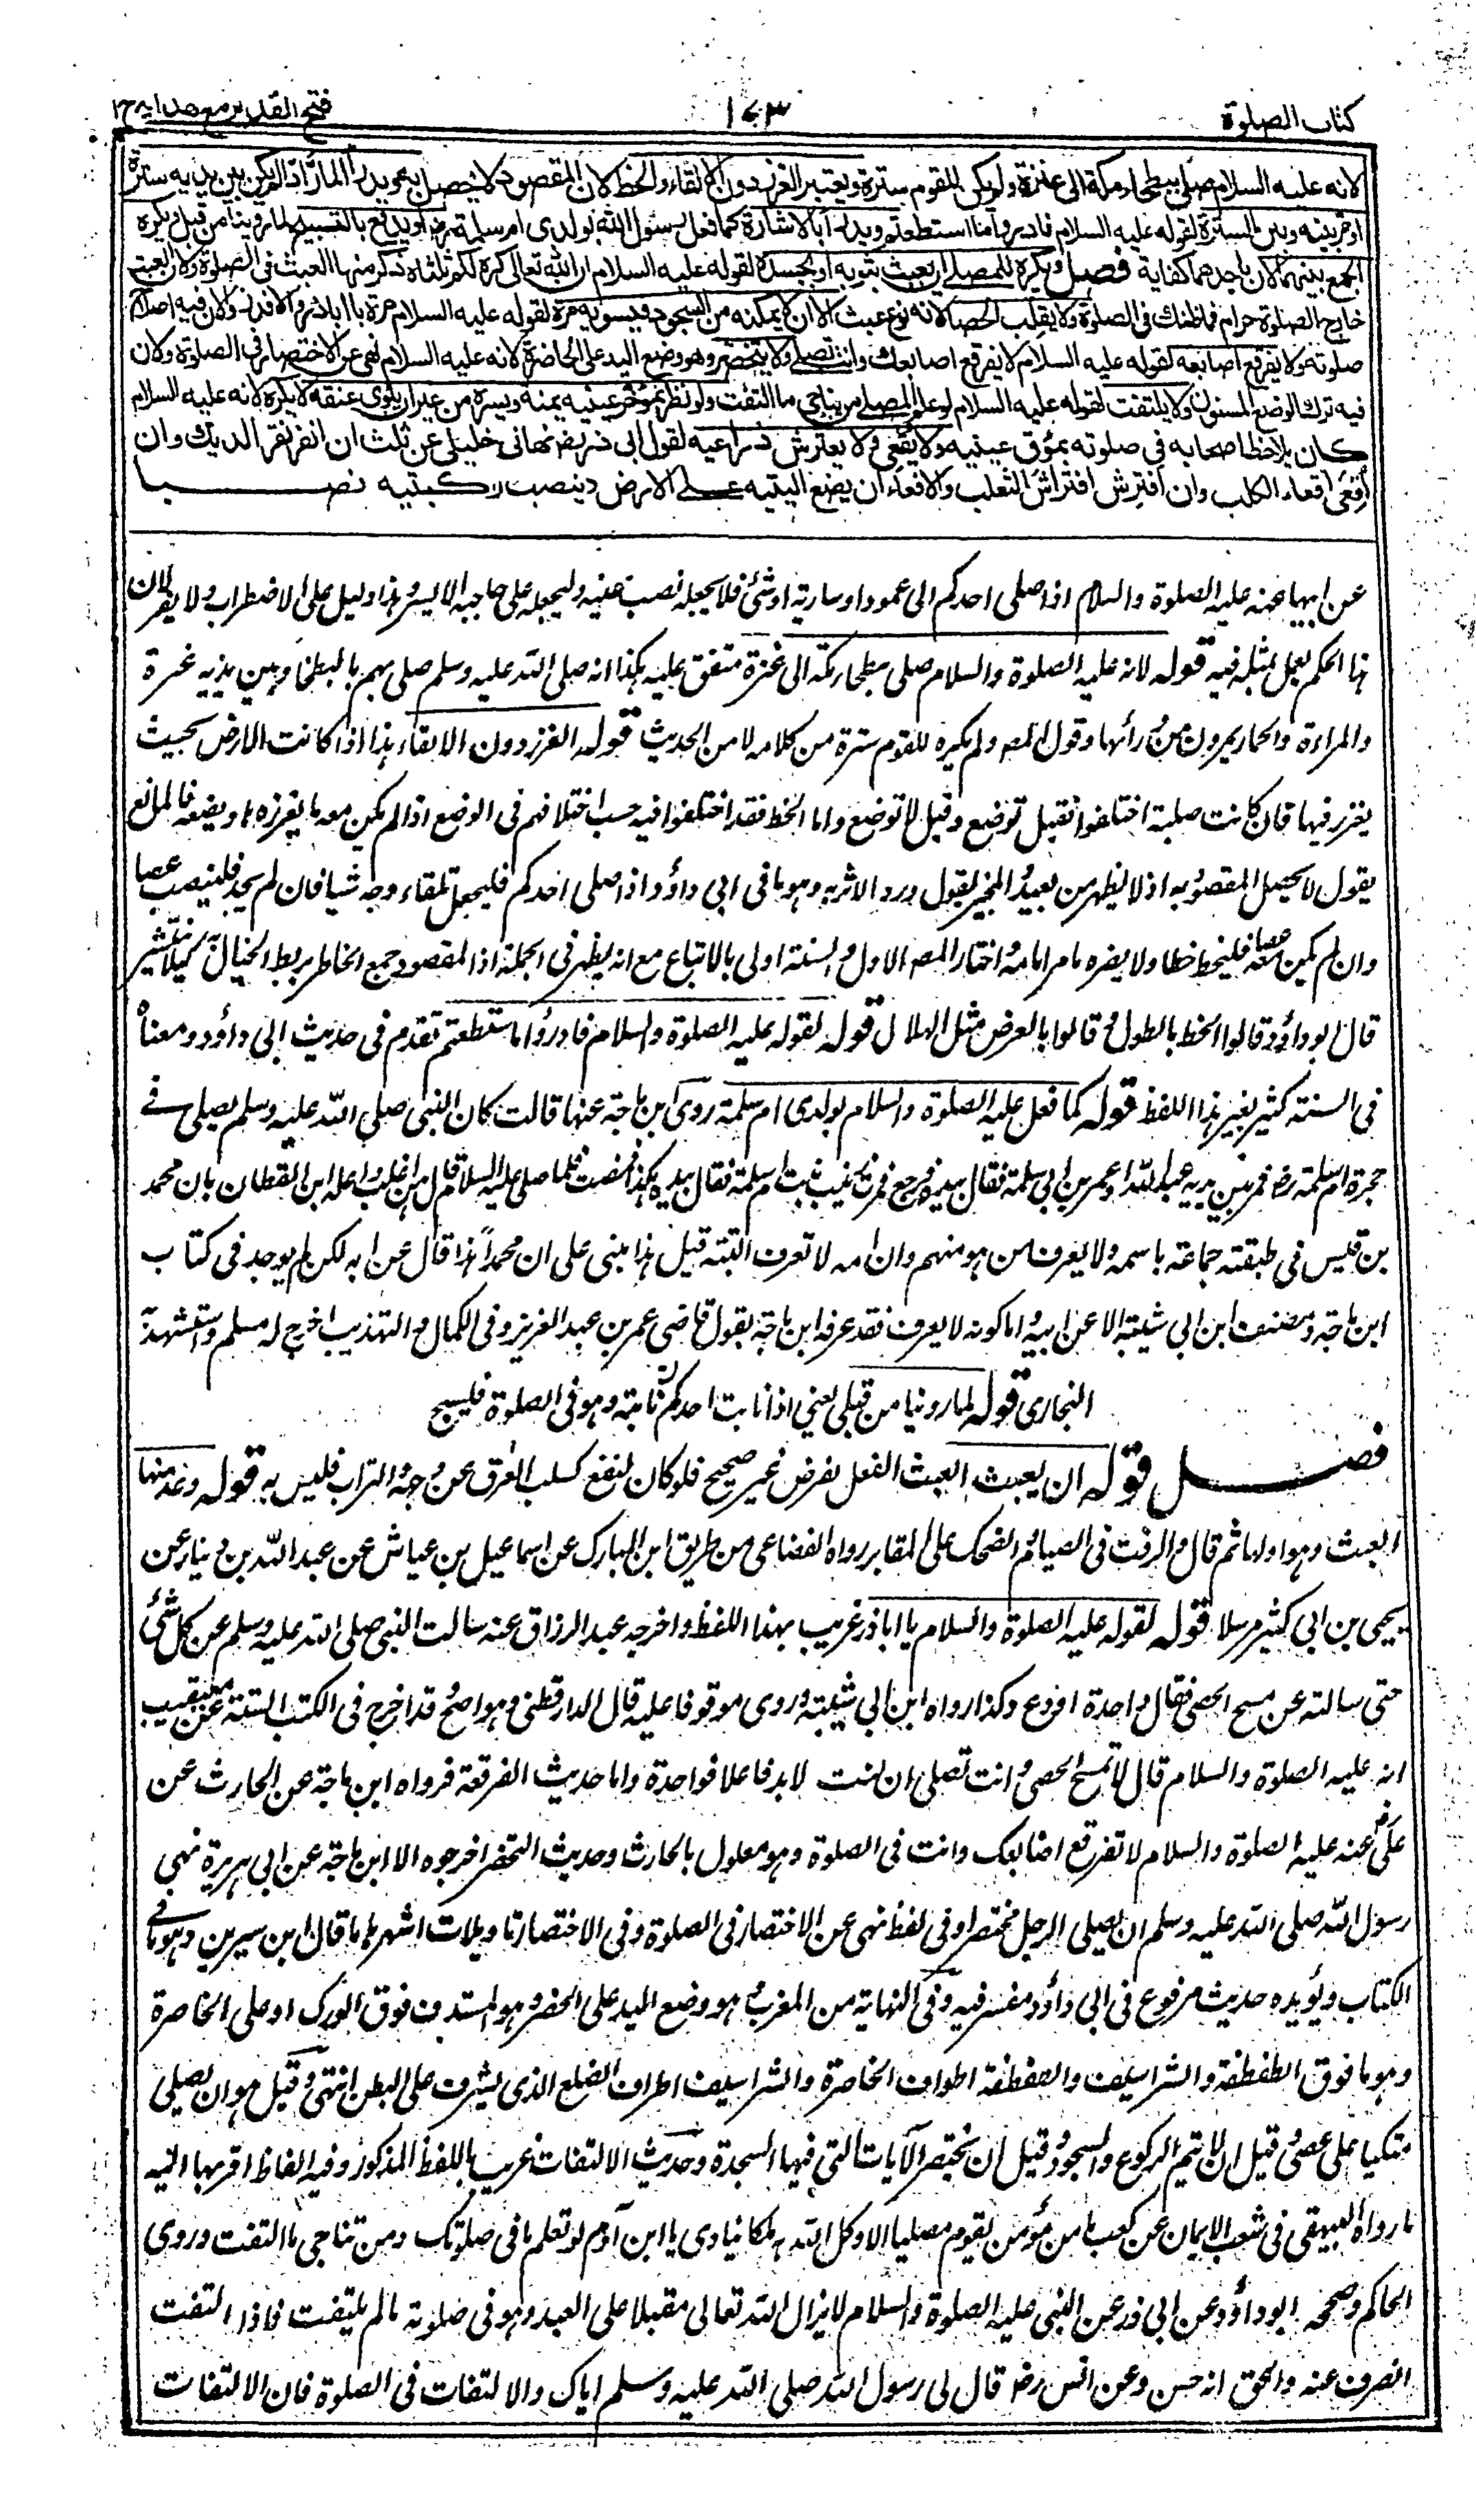 كتاب الصلوة
١٧٣
فتح القدير مع هدايه ج ١
لانه عليه السلام صلى ببطحاء مكة الى عنزة ولم يكن للقوم سترة ويعتبر الغرز دون الالقاء والخط لان المقصود لا يحصل به ويدرأ المار اذا لم يكن بين يديه سترة
او مر بينه وبين السترة لقوله عليه السلام فادرؤا ما استطعتم ويدرأ بالاشارة كما فعل رسول الله بولدى ام سلمة رض او يدفع بالتسبيح لما روينا من قبل ويكره
الجمع بينهما لان باحدهما كفاية فصل ويكره للمصلى ان يعبث بثوبه او بجسده لقوله عليه السلام ان الله تعالى كره لكم ثلثا وذكر منها العبث فى الصلوة ولان العبث
خارج الصلوة حرام فما ظنك فى الصلوة ولا يقلب الحصا لانه نوع عبث الا ان لا يمكنه من السجود فيسويه مرة لقوله عليه السلام مرة يا اباذر والا فذر ولان فيه اصلاح
صلوته ولا يفرقع اصابعه لقوله عليه السلام لا تفرقع اصابعك وانت تصلى ولا يتخصر وهو وضع اليد على الخاصرة لانه عليه السلام نهى عن الاختصار فى الصلوة ولان
فيه ترك الوضع المسنون ولا يلتفت لقوله عليه السلام لو علم المصلى من يناجى ما التفت ولو نظر بمؤخر عينيه يمنة ويسرة من غير ان يلوى عنقه لا يكره لانه عليه السلام
كان يلاحظ اصحابه فى صلوته بموق عينيه ولا يقعى ولا يفترش ذراعيه لقول ابى ذر رض نهانى خليلى عن ثلث ان انقر نقر الديك وان
اقعى اقعاء الكلب وان افترش افتراش الثعلب والاقعاء ان يضع اليتيه على الارض وينصب ركبتيه نصبا
عن ابيها عنه عليه الصلوة والسلام اذا صلى احدكم الى عمود او سارية او شئ فلا يجعله نصب عينيه وليجعله على حاجبه الايسر وهذا دليل على الاضطراب ولا يضر لان
هذا الحكم يعمل بمثله فيه قوله لانه عليه الصلوة والسلام صلى ببطحاء مكة الى عنزة متفق عليه هكذا انه صلى الله عليه وسلم صلى بهم بالبطحاء وبين يديه عنزة
والمراءة والحمار يمرون من ورائها وقول المص ولم يكن للقوم سترة من كلامه لا من الحديث قوله الغرز دون الالقاء هذا اذا كانت الارض بحيث
يغرز فيها فان كانت صلبة اختلفوا فقيل توضع وقيل لا توضع واما الخط فقد اختلفوا فيه حسب اختلافهم فى الوضع اذا لم يكن معه ما يغرزه او يضعه فالمانع
يقول لا يحصل المقصود به اذ لا يظهر من بعيد والمجيز يقول ورد الاثر به وهو ما فى ابى داؤد اذا صلى احدكم فليجعل تلقاء وجهه شيا فان لم يجد فلينصب عصا
وان لم يكن معه عصا فليخط خطا ولا يضره ما مر امامه واختار المص الاول والسنة اولى بالاتباع مع انه يظهر فى الجملة اذ المقصود جمع الخاطر بربط الخيال به كيلا ينتشر
قال ابو داؤد قالوا الخط بالطول وقالوا بالعرض مثل الهلال قوله لقوله عليه الصلوة والسلام فادرؤا ما استطعتم تقدم فى حديث ابى داؤد ومعناه
فى السنة كثير بغير هذا اللفظ قوله كما فعل عليه الصلوة والسلام بولدى ام سلمة روى ابن ماجة عنها قالت كان النبى صلى الله عليه وسلم يصلى فى
حجرة ام سلمة رض فمر بين يديه عبد الله او عمر بن ابى سلمة فقال بيده فرجع فمرت زينب بنت ام سلمة فقال بيده هكذا فمضت فلما صلى عليه السلام قال هن اغلب واعله ابن القطان بان محمد
بن قيس فى طبقته جماعة باسمه ولا يعرف من هو منهم وان امه لا تعرف البتة قيل هذا مبنى على ان محمدا هذا قال عن امه لكن لم يوجد فى كتاب
ابن ماجة ومصنف ابن ابى شيبة الا عن ابيه واما كونه لا يعرف فقد عرفه ابن ماجة بقوله قاضى عمر بن عبد العزيز وفى الكمال والتهذيب اخرج له مسلم واستشهد به
البخارى قوله لما روينا من قبل يعنى اذا نابت احدكم نائبة وهو فى الصلوة فليسبح
فصل قوله ان يعبث العبث الفعل لغرض غير صحيح فلو كان لنفع كسلب العرق عن وجهه والتراب فليس به قوله وعد منها
العبث وهو اولها ثم قال والرفث فى الصيام والضحك على المقابر رواه القضاعى من طريق ابن المبارك عن اسماعيل بن عياش عن عبد الله بن دينار عن
يحيى بن ابى كثير مرسلا قوله لقوله عليه الصلوة والسلام يا اباذر غريب بهذا اللفظ واخرجه عبد الرزاق عنه سالت النبى صلى الله عليه وسلم عن كل شئ
حتى سالته عن مسح الحصى فقال واحدة او دع وكذا رواه ابن ابى شيبة وروى موقوفا عليه قال الدارقطنى وهو اصح وقد اخرج فى الكتب الستة عن معيقيب
انه عليه الصلوة والسلام قال لا تمسح الحصى وانت تصلى ان كنت لابد فاعلا فواحدة واما حديث الفرقعة فرواه ابن ماجة عن الحارث عن
على رض عنه عليه الصلوة والسلام لا تفرقع اصابعك وانت فى الصلوة وهو معلول بالحارث وحديث التخصر اخرجوه الا ابن ماجة عن ابى هريرة نهى
رسول الله صلى الله عليه وسلم ان يصلى الرجل مختصرا وفى لفظ نهى عن الاختصار فى الصلوة وفى الاختصار تاويلات اشهرها ما قال ابن سيرين وهو ما فى
الكتاب ويؤيده حديث مرفوع فى ابى داؤد مفسر فيه وفى النهاية من المغرب هو وضع اليد على الخصر وهو المستدق فوق الورك او على الخاصرة
وهو ما فوق الطفطفة والشراسيف والطفطفة اطراف الخاصرة والشراسيف اطراف الضلع الذى يشرف على البطن انتهى وقيل هو ان يصلى
متكيا على عصى وقيل ان لا يتم الركوع والسجود وقيل ان يختصر الآيات التى فيها السجدة وحديث الالتفات غريب باللفظ المذكور وفيه الفاظ اقربها اليه
ما رواه البيهقى فى شعب الايمان عن كعب ما من مؤمن يقوم مصليا الا وكل الله به ملكا ينادى يا ابن آدم لو تعلم ما فى صلوتك ومن تناجى ما التفت وروى
الحاكم وصححه ابو داؤد عن ابى ذر عن النبى عليه الصلوة والسلام لا يزال الله تعالى مقبلا على العبد وهو فى صلوته ما لم يلتفت فاذا التفت
انصرف عنه والحق انه حسن وعن انس رض قال لى رسول الله صلى الله عليه وسلم اياك والالتفات فى الصلوة فان الالتفات